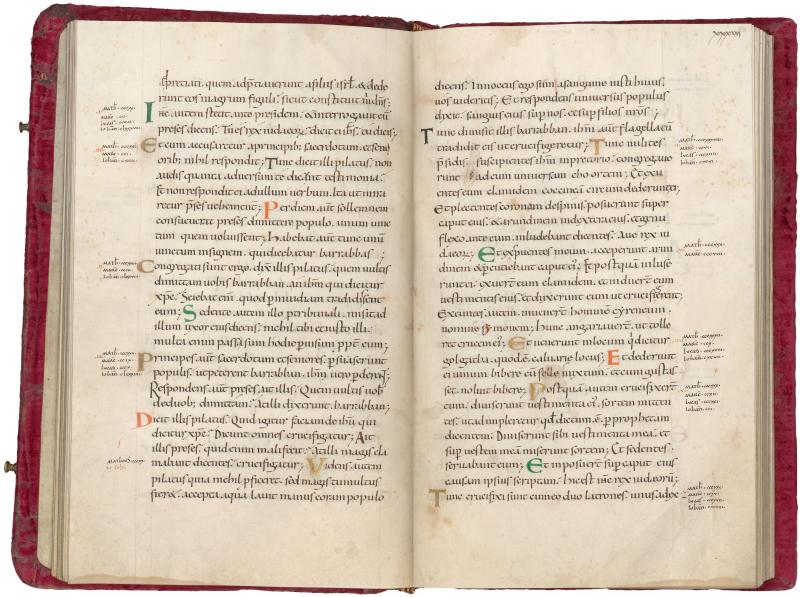 appretiati. quem adp̄tiauerunt a filiis isrl̄. & dede
runt eos in agrum figuli. sicut constituit m̄ dn̄s;
Ih̄c autem stetit ante presidem. & interrogauit eū
preses dicens. Tu es rex iudeorȝ. dicit eihc̄. tu dicis;
Et cum accusaretur a principibȝ sacerdotum. & senio
ribȝ nihil respondit; Tunc dicit illi pilatus. non
audis quanta aduersum te dicant testimonia.
Et non respondit ei ad ullum uerbum. Ita ut mira
retur p̄ses uehementer; Per diem aut̄ sollemnem
consueuerat preses dimittere populo. unum uinc
tum quem uoluissent; Habebat aut̄ tunc unū
uinctum insignem. qui dicebatur barrabbas;
Congregatis ergo. dix̄ illis pilatus. quem uultis
dimittam uobis barrabban. an ih̄m qui dicitur
xp̄c. Sciebat eni̅. quod p̄ inuidiam tradidissent
eum; Sedente autem illo p̄ tribunali. misit ad
illum uxor eius dicens. nichil tibi et iusto illi.
multa enim passa sum hodie p̄ uisum ppt̄ eum;
Principes aut̄ sacerdotum et seniores. p̄suaserunt
populis. ut peterent barrabban. ih̄m uero p̄derent;
Respondens aut̄ p̄ses. ait illis. Quem uultis uob̄
de duobȝ dimittam. At illi dixerunt. barrabban;
Dicit illis pilatus. Quid igitur faciam de ih̄u. qui
dicitur xp̄c. Dicunt omnes crucifigatur; Ait
illis preses. quid enim mali fecit. At illi magis cla
mabant dicentes. crucifigatur; Videns autem
pilatus quia nichil p̄ficeret. sed magis tumultus
fieret. accepta aqua lauit manus coram populo
xxxvii
dicens. Innocens ego sum a sanguine iusti huius.
uos uideritis; Et respondens uniuersus populus
dixit. sanguis eius sup nos. et sup filios nr̄os;
Tunc dimisit illis barrabban. ih̄m aut̄ flagellatū
tradidit eis ut crucifigeretur; Tunc milites
p̄sidis. suscipientes ih̄m in pretorio. congregaue
runt ad eum uniuersam cohortem; Et exu
entes eum clamidem coccineam circumdederunt ei;
Et plectentes coronam de spinis. posuerunt super
caput eius. & arundinem in dextera eius. et genu
flexo ante eum. inludebant dicentes. Aue rex iu
deorȝ; Et expuentes in eum. acceperunt arun
dinem et p̄cutiebant caput eiȝ. Et postquam inluse
runt ei. exuerunt eum clamidem. et induerunt̄ eum
uestimentis eius. et duxerunt eum ut crucifigerent;
Exeuntes autem. inuenert̄ hominē cyreneum.
nomine simonem; hunc angariauert̄. ut tolle
ret crucem eiȝ; Et uenerunt in locum q̄ dicitur
golgatha. quod est̄ caluarie locus; Et dederunt
ei uinum bibere cū felle mixtum. et cum gustas
set. noluit bibere; Postquā autem crucifixert̄
eum. diuiserunt uestimenta eiȝ. sortem mitten
tes. ut adimpleretur qd̄ dictum ē. p̄ prophetam
dicentem. Diuiserunt sibi uestimenta mea. et
sup uestem meā miserunt sortem; Et sedentes.
seruabant eum; Et imposuert̄ sup caput eius
causam ipsius scriptam. hic est ih̄c rex iudeorū;
Tunc crucifixi sunt cum eo duo latrones. unus a dex